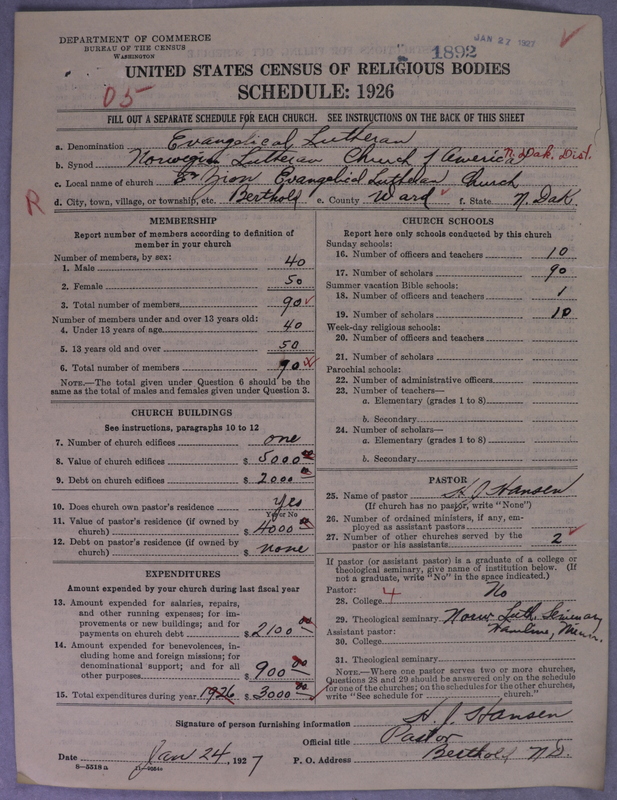 DEPARTMENT OF COMMERCE
BUREAU OF THE CENSUS
WASHINGTON
JAN 27 1927
1892
UNITED STATES CENSUS OF RELIGIOUS BODIES
SCHEDULE: 1926
05
FILL OUT A SEPARATE SCHEDULE FOR EACH CHURCH. SEE INSTRUCTIONS ON THE BACK OF THIS SHEET
a. Denomination Evangelical Lutheran
b. Synod Norwegian Lutheran Church of America N. Dak. Dist.
c. Local name of church Zion Evangelical Lutheran Church
R
d. City, town, village, or township, etc. Berthold e. County Ward f. State N. Dak.
MEMBERSHIP
Report number of members according to definition of
member in your church
Number of members, by sex:
1. Male 40
2. Female 50
3. Total number of members 90
Number of members under and over 13 years old:
4. Under 13 years of age 40
5. 13 years old and over 50
6. Total number of members 90
NOTE.—The total given under Question 6 should be the
same as the total of males and females given under Question 3.
CHURCH BUILDINGS
See instructions, paragraphs 10 to 12
7. Number of church edifices one
8. Value of church edifices $ 5000 00
9. Debt on church edifices $ 2000 00
10. Does church own pastor's residence yes
Yes or No
11. Value of pastor's residence (if owned by
church) $ 4000 00
12. Debt on pastor's residence (if owned by
church) $ none
EXPENDITURES
Amount expended by your church during last fiscal year
13. Amount expended for salaries, repairs,
and other running expenses; for im-
provements or new buildings; and for
payments on church debt $ 2100 00
14. Amount expended for benevolences, in-
cluding home and foreign missions; for
denominational support; and for all
other purposes $ 900 00
15. Total expenditures during year 1926 $ 3000 00
CHURCH SCHOOLS
Report here only schools conducted by this church
Sunday schools:
16. Number of officers and teachers 10
17. Number of scholars 90
Summer vacation Bible schools:
18. Number of officers and teachers 1
19. Number of scholars 10
Week-day religious schools:
20. Number of officers and teachers
21. Number of scholars
Parochial schools:
22. Number of administrative officers
23. Number of teachers—
a. Elementary (grades 1 to 8)
b. Secondary
24. Number of scholars—
a. Elementary (grades 1 to 8)
b. Secondary
PASTOR
25. Name of pastor H. J. Hansen
(If church has no pastor, write "None")
26. Number of ordained ministers, if any, em-
ployed as assistant pastors
27. Number of other churches served by the
pastor or his assistants 2
If pastor (or assistant pastor) is a graduate of a college or
theological seminary, give name of institution below. (If
not a graduate, write "No" in the space indicated.)
Pastor:
28. College 4 No
29. Theological seminary Norw Luth. Seminary
Hamline, Minn.
Assistant pastor:
30. College
31. Theological seminary
NOTE.—Where one pastor serves two or more churches,
Questions 28 and 29 should be answered only on the schedule
for one of the churches; on the schedules for the other churches,
write "See schedule for church."
Signature of person furnishing information H. J. Hansen
Official title Pastor
Date Jan 24, 1927 P. O. Address Berthold N.D.
8—5518 a